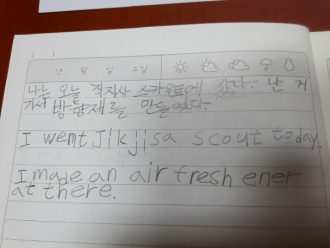 년 월 일 요일
나는 오늘 직지사 스카우트에 갔다. 난 거
가서 방향제를 만들었다.
I went Jikjisa scout today.
I made an air fresh ener
at there.